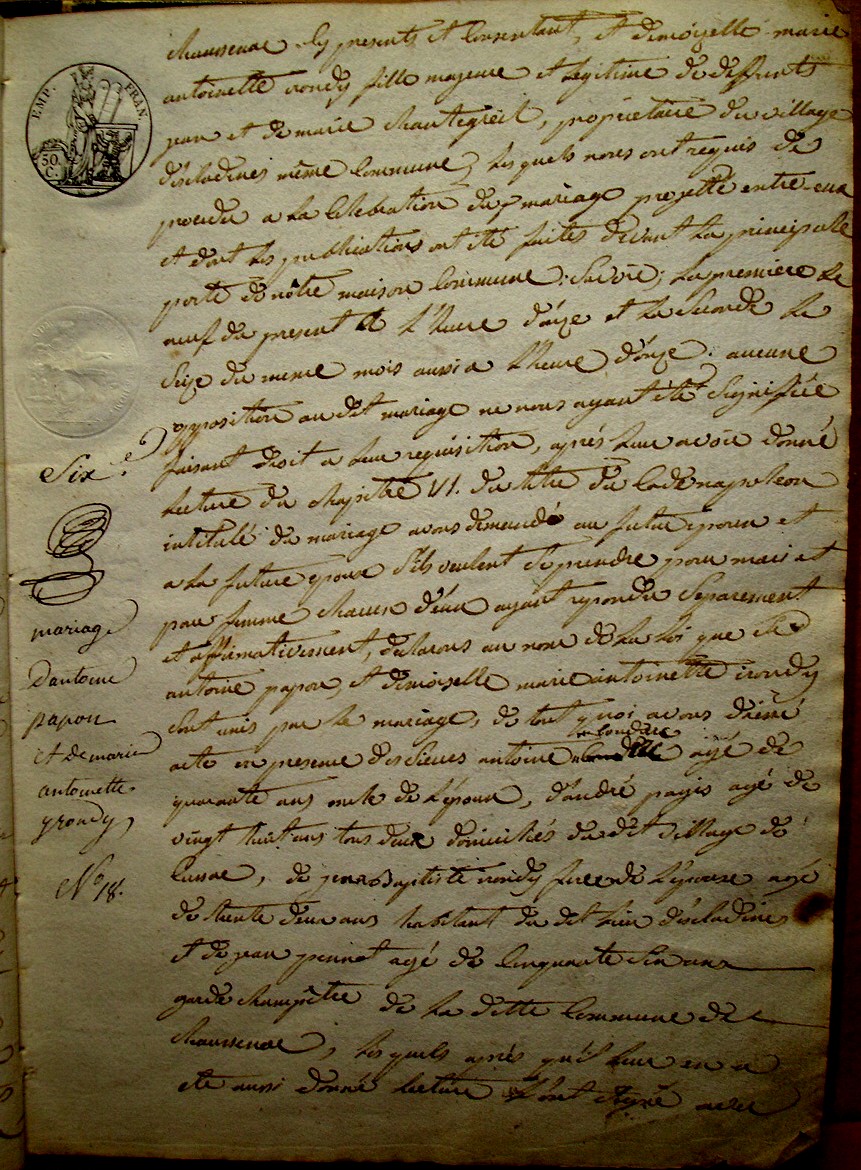 EMP. FRAN.
50. C.
chaussenac icy presents et Consentant, et demoiselle marie
antoinette irondy fille majeure et legitime de deffunts
jean et de marie chantegreil, propriétaire du village
d'escladines même Commune, les quels nous ont requis de
proceder a la Celebration du mariage projetté entre eux
et dont les publications ont été faites devant la principale
porte de nôtre maison Commune: Savoir, la premiere le
neuf du present a l'heure d'onze et la Seconde le
Seize du meme mois aussi a l'heure d'onze. aucune
opposition au dit mariage ne nous ayant été Signifiée
faisant droit a leur requisition, après leur avoir donné
Lecture du chapitre VI. du titre du Code napoleon
intitulé du mariage avons demandé au futur epoux et
a la future epouse S'ils veulent Se prendre pour mari et
pour femme chacun d'eux ayant repondu Separement
et affirmativement, declarons au nom de la loi que
antoine papon, et demoiselle marie antoinette irondy
Sont unis par le mariage, de tout quoi avons dréssé
acte en presence des Sieurs antoine agé de
quarante ans oncle de l'époux, d'andré pagis agé de
vingt huit ans tous deux domiciliés du dit village de
Cussac, de jean Baptiste irondy frere de l'épouse agé
de trente deux ans habitant du dit lieu d'escladines
et de jean agé de Cinquante Six ans
garde champêtre de la ditte Commune de
chaussenac, les quels après qu'il leur en a
été aussi donné lecture l'ont Signé avec
Six.e
mariage
D'antoine
papon
et de marie
antoinette
yrondy,
N.o 18.